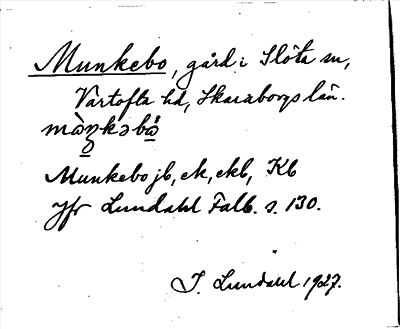 Munkebo, gård i Slöta sn,
Vartofta hd, Skaraborgs län.
màŋkəbå̀
Munkebo jb, ek, ekb, Kb
Jfr Lundahl Falb. s. 130.
I. Lundahl 1927.